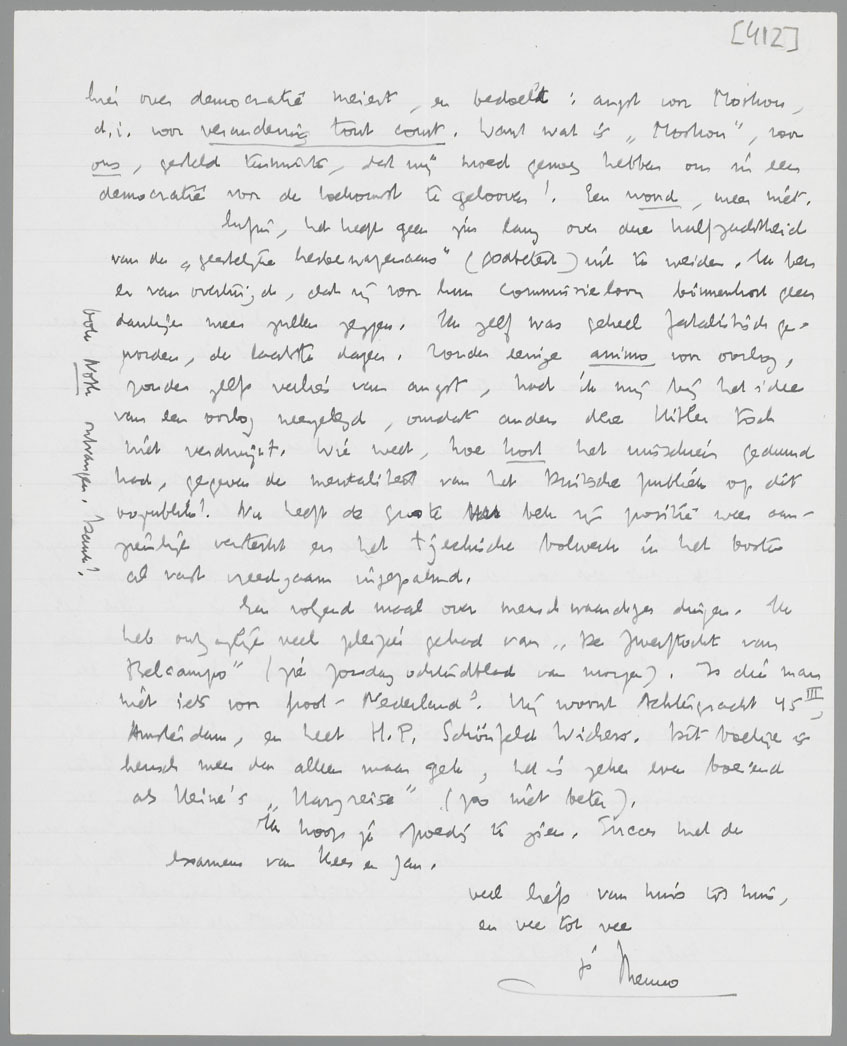 [412]
hier over democratie meiert, en bedoelt: angst voor Moskou,
d.i. voor verandering tout court. Want wat is „Moskou”, voor
ons, gesteld tenminste, dat wij moed genoeg hebben om in een
democratie voor de toekomst te gelooven! Een woord, meer niet.
Enfin, het heeft geen zin lang over deze halfzachtheid
van de „geestelijke herbewapenaars” (godbetert) uit te weiden. Ik ben
er van overtuigd, dat zij voor hun commissieloon binnenkort geen
dankje meer zullen zeggen. Ik zelf was geheel fatalistisch ge-
worden, de laatste dagen. Zonder eenige animo voor oorlog,
zonder zelfs verlies van angst, had ik mij bij het idee
van een oorlog neergelegd, omdat anders deze Hitler toch
niet verdwijnt. Wie weet, hoe kort het misschien geduurd
had, gegeven de mentaliteit van het Duitsche publiek op dit
oogenblik! Nu heeft de groote bek zijn positie weer aan-
zienlijk versterkt en het tsjechische bolwerk in het oosten
al vast vreedzaam ingepalmd.
Een volgend maal over menschwaardiger dingen. Ik
heb ontzaglijk veel plezier gehad van „De Zwerftocht van
Belcampo” (zie zondagochtendblad van morgen). Is die man
niet iets voor Groot-Nederland? Hij woont Achtergracht 45 III,
Amsterdam, en heet H.P. Schönfeld Wichers. Dit boekje is
heusch meer dan alleen maar gek, het is zeker even boeiend
als Heine's „Harzreise” (zoo niet beter).
Ik hoop je spoedig te zien. Succes met de
examens van Kees en Jan.
veel liefs van huis tot huis,
en vee tot vee
je Menno
boek Noth ontvangen. Dank!